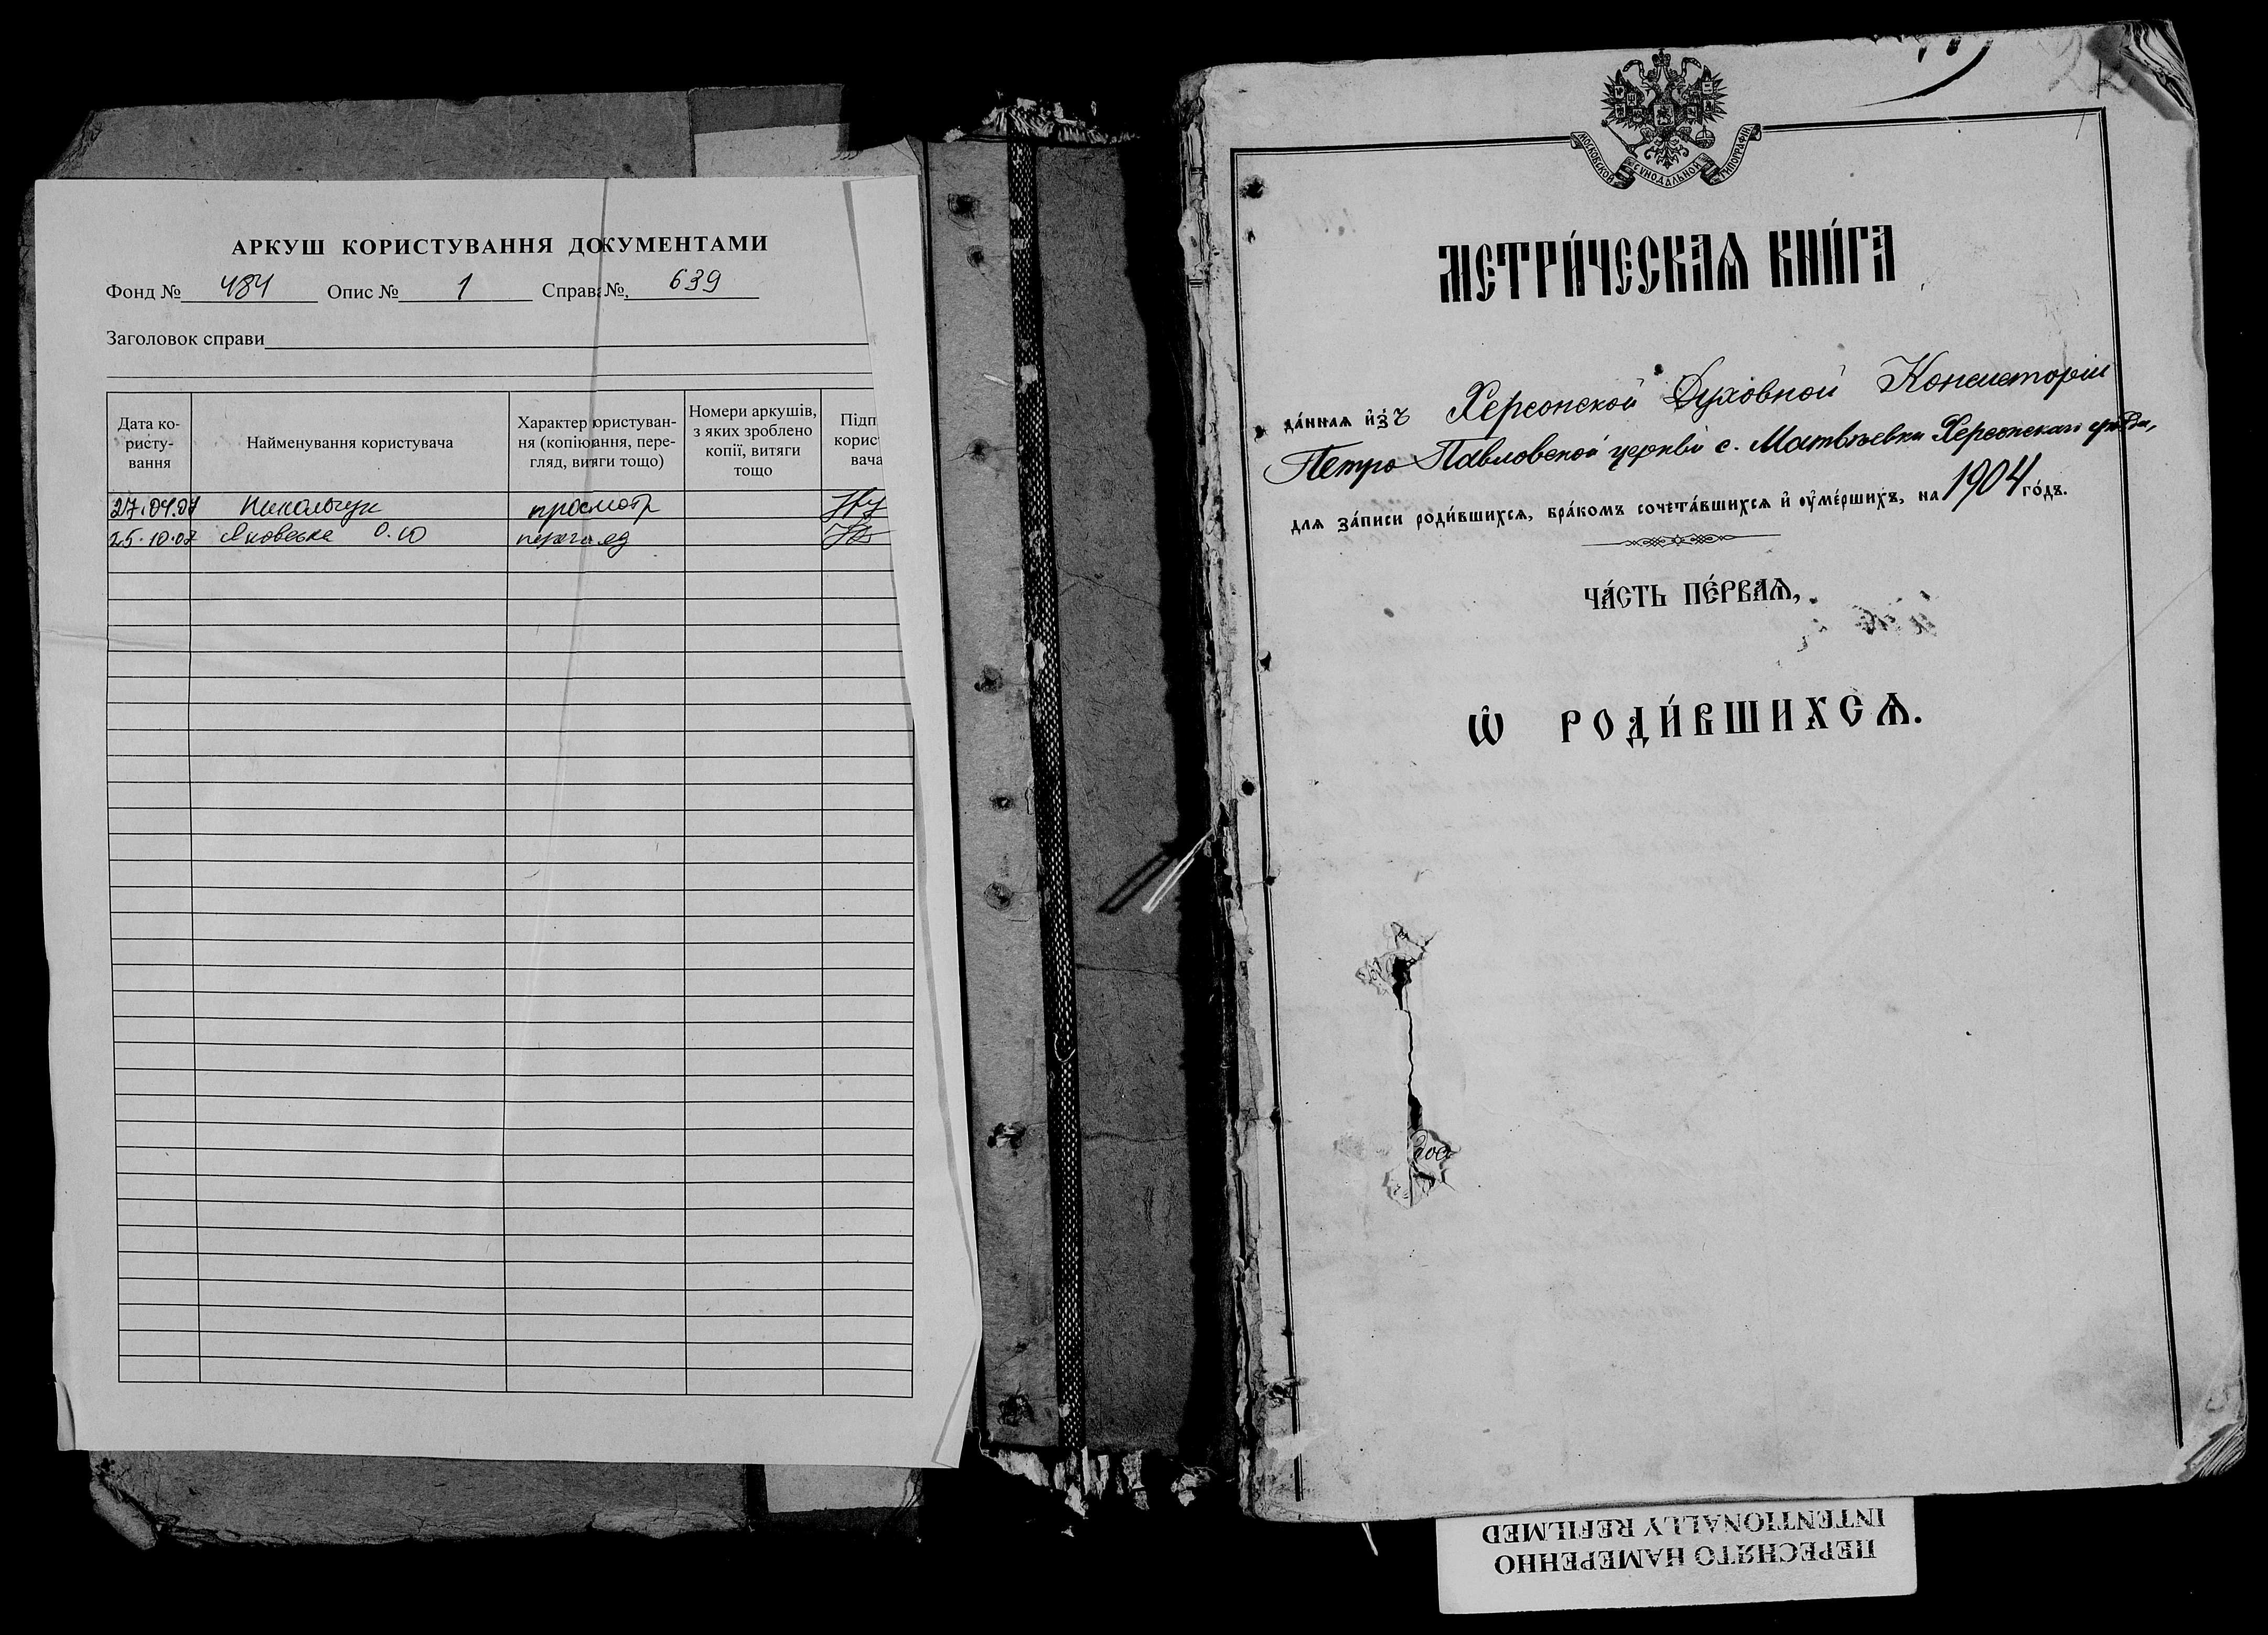 АРКУШ КОРИСТУВАННЯ ДОКУМЕНТАМИ
Фонд № 484 Опис № 1 Справа №. 639
Заголовок справи
Дата ко-
ристу-
вання
Найменування користувача
Характер користуван-
ня (копіювання, пере-
гляд, витяги тощо)
Номери аркушів,
з яких зроблено
копії, витяги
тощо
Підп
корис
вача
27.04.07 просмотр
25.10.07 О.Ю перегляд
МОСКОВСКОЙ СѴНОДАЛЬНОЙ ТИПОГРАФІИ
МЕТРИ́ЧЕСКАѦ КНИ́ГА
да́ннаѧ и҆зъ Херсонской Духовной Консисторіи
Петро Павловской церкви с. Матвѣевки Херсонскаго уѣзда,
длѧ за́писи роди́вшихсѧ, бра́комъ сочета́вшихсѧ и҆ ᲂу҆ме́ршихъ, на 1904 го́дъ.
ЧА́СТЬ ПЕ́РВАѦ,
Ѽ РОДИ́ВШИХСѦ.
дос
ПЕРЕСНЯТО НАМЕРЕННО
INTENTIONALLY REFILMED